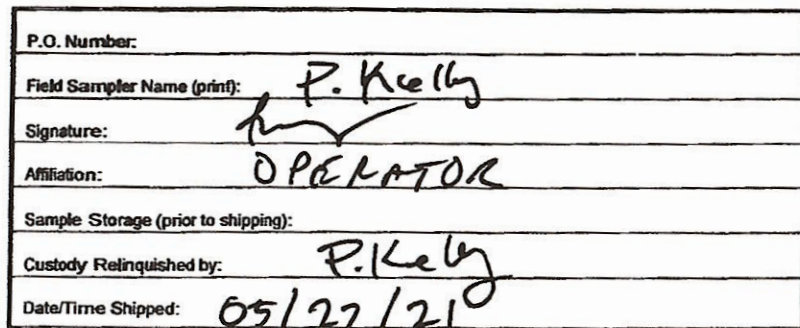 P.O. Number:
Field Sampler Name (print): P. Kelly
Signature:
Affiliation: OPERATOR
Sample Storage (prior to shipping):
Custody Relinquished by: P. Kelly
Date/Time Shipped: 05/27/21